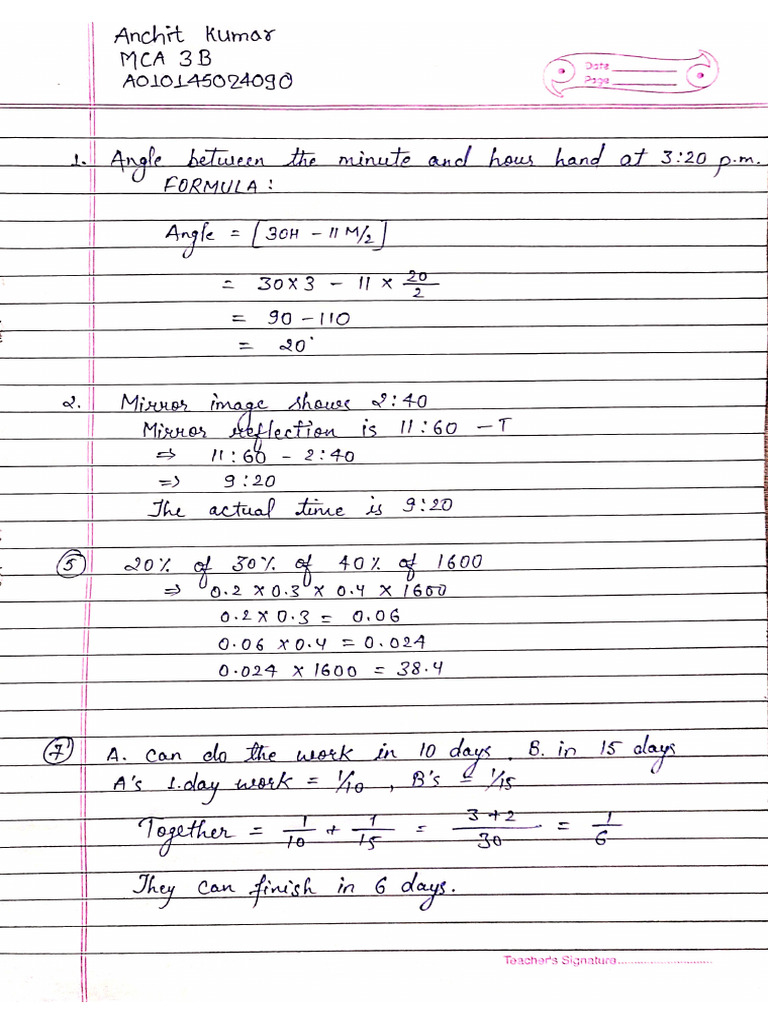 Anchit Kumar
MCA 3B
A010145024090
Date
Page
1. Angle between the minute and hour hand at 3:20 p.m.
FORMULA :
Angle = [30H - 11 M/2]
= 30 x 3 - 11 x 20/2
= 90 - 110
= 20°
2. Mirror image shows 2:40
Mirror reflection is 11:60 - T
⇒ 11:60 - 2:40
⇒ 9:20
The actual time is 9:20
5 20% of 30% of 40% of 1600
⇒ 0.2 x 0.3 x 0.4 x 1600
0.2 x 0.3 = 0.06
0.06 x 0.4 = 0.024
0.024 x 1600 = 38.4
7 A. can do the work in 10 days, B. in 15 days
A's 1.day work = 1/10 , B's = 1/15
Together = 1/10 + 1/15 = 3+2/30 = 1/6
They can finish in 6 days.
Teacher's Signature